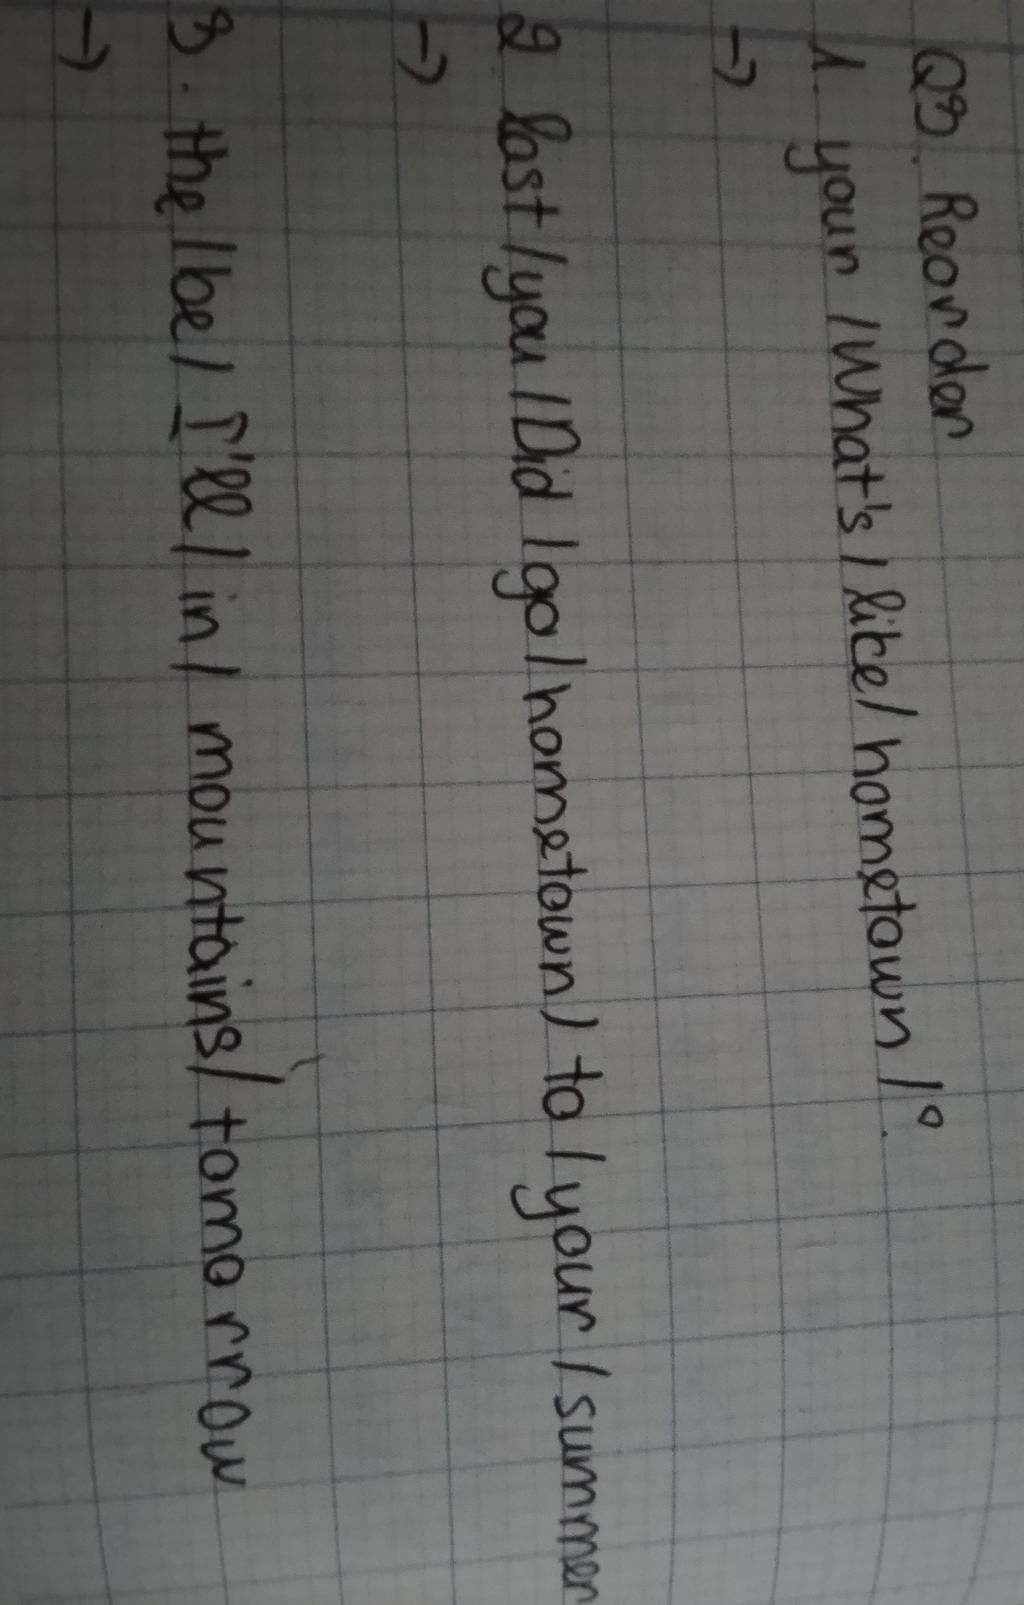 Q3. Reorder
1. your / What's / like / hometown / ?
→
2. last / you / Did / go / hometown / to / your / summer
→
3. the / be / I'll / in / mountains / tomorrow
→